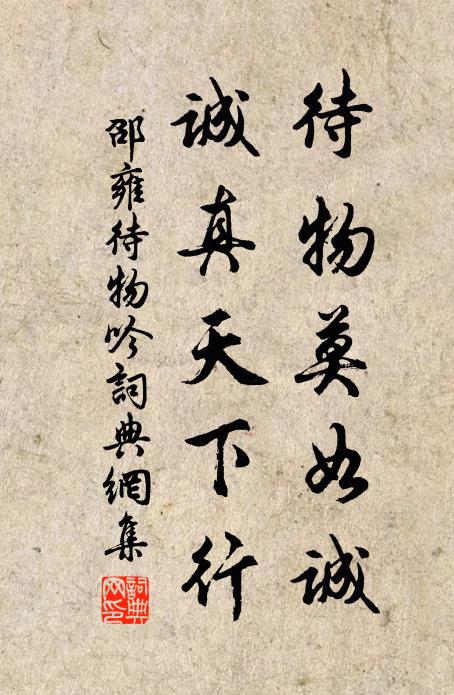 待物莫如誠
誠真天下行
邵雍待物吟詞典網集
詞典網印